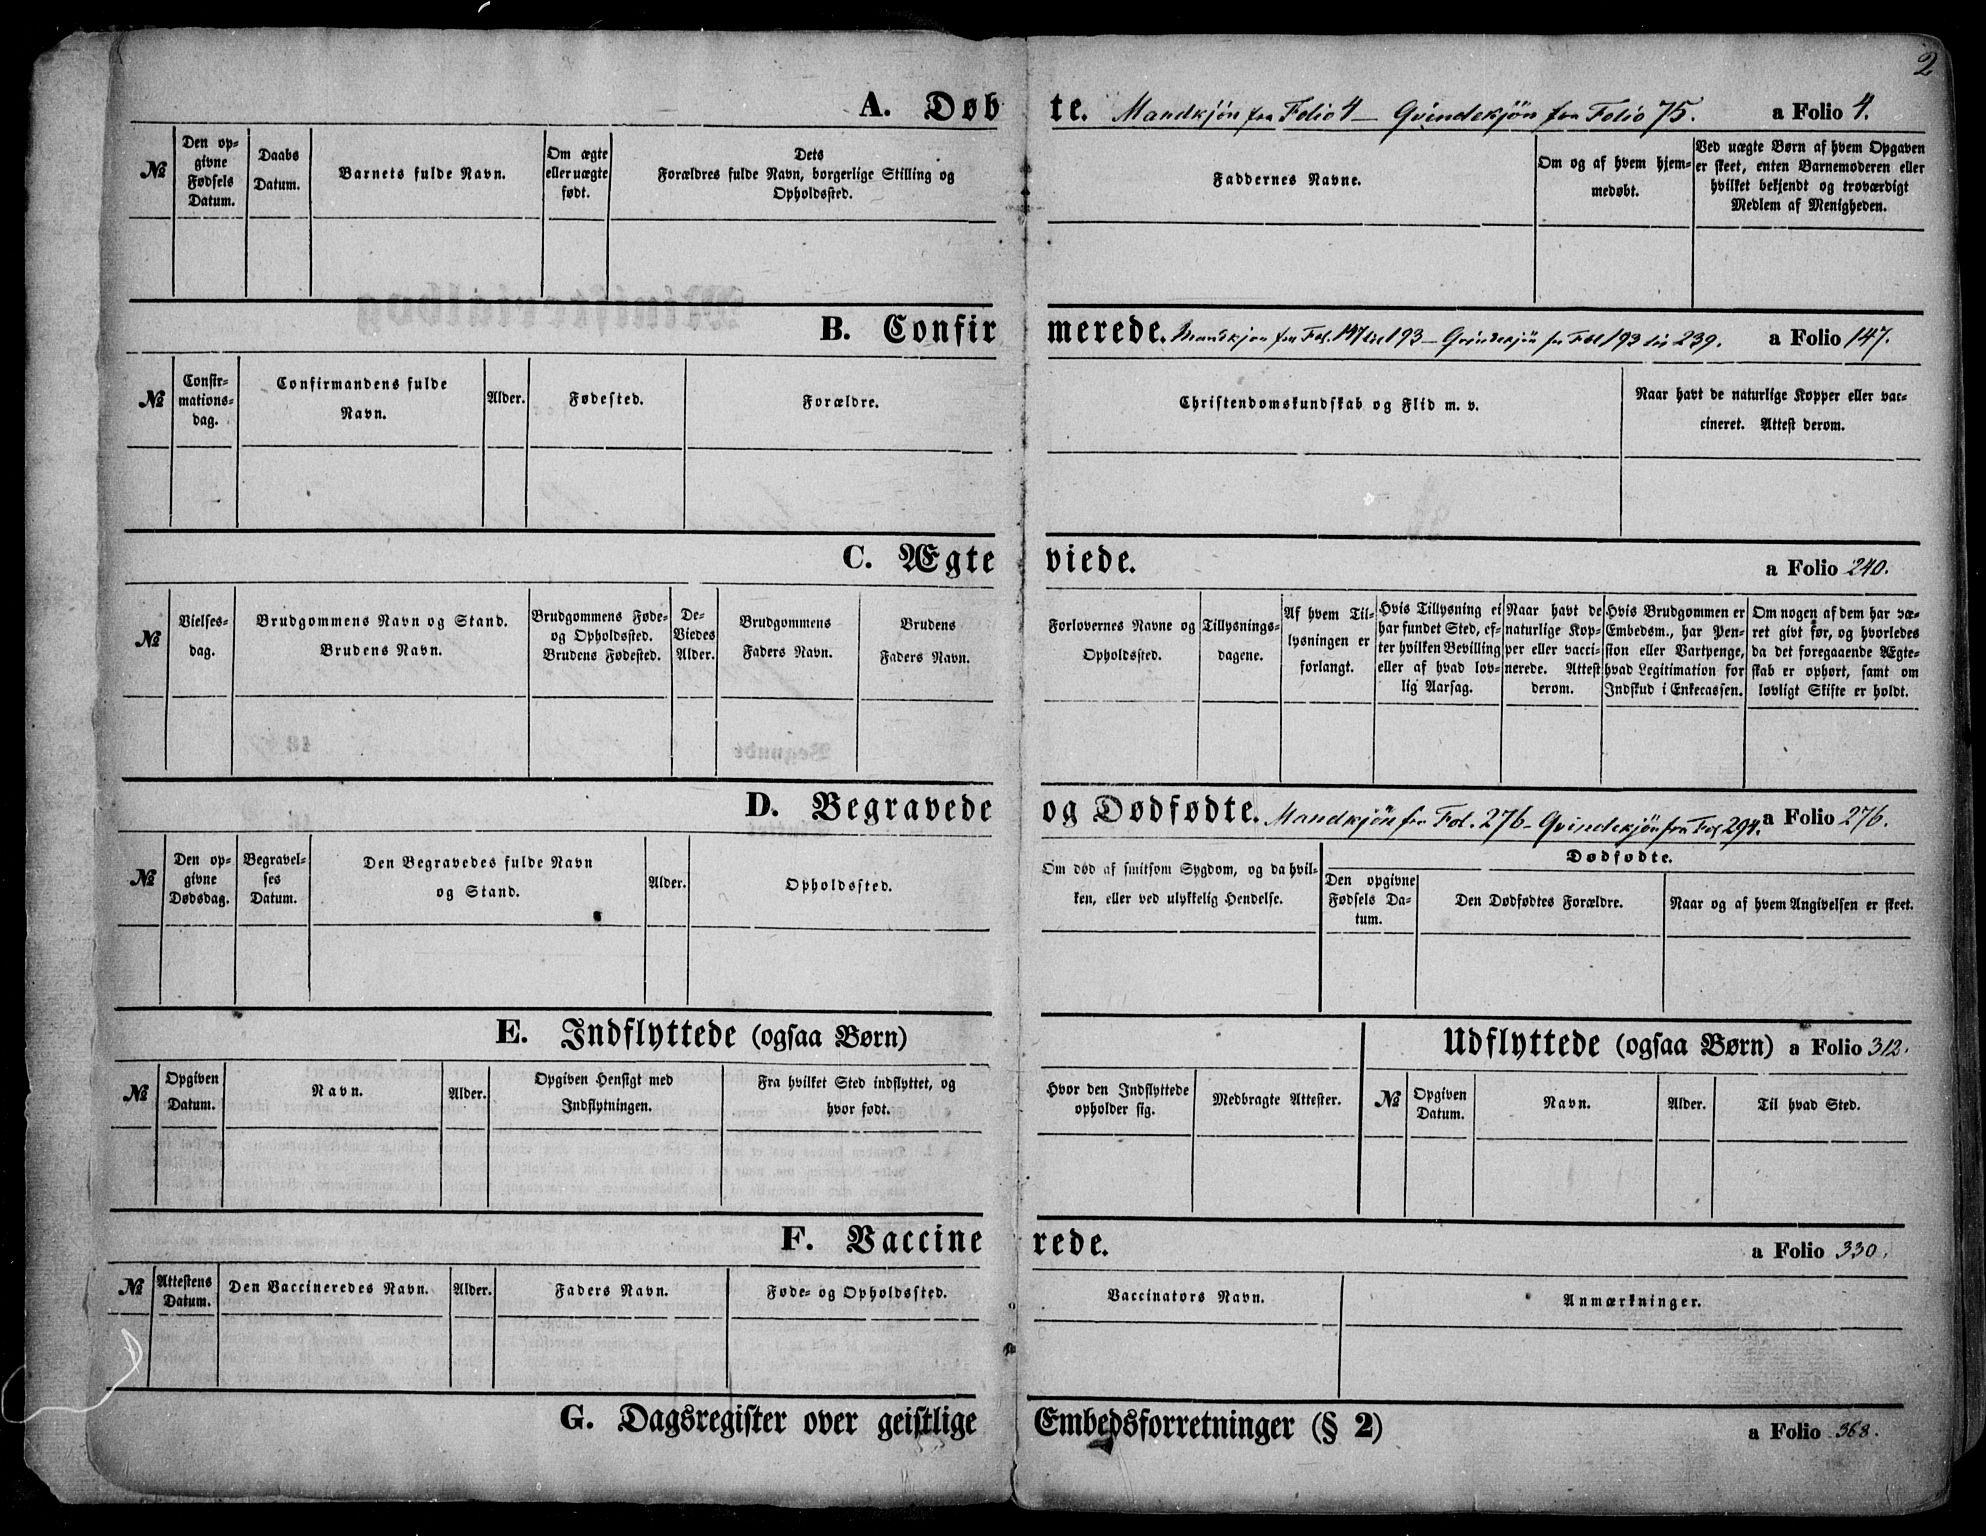 2
A. Døbte. Mandkjøn fra Folio 4 — Qvindekjøn fra Folio 75. a Folio 4.
№
Den op-
givne
Fødsels
Datum.
Daabs
Datum.
Barnets fulde Navn.
Om ægte
eller uægte
født.
Dets
Forældres fulde Navn, borgerlige Stilling og
Opholdssted.
Faddernes Navne.
Om og af hvem hjem-
medøbt.
Ved uægte Børn af hvem Opgaven
er skeet, enten Barnemoderen eller
hvilket bekjendt og troværdigt
Medlem af Menigheden.
B. Confirmerede. Mandkjøn fra Fol. 147 til 193 — Qvindekjøn fra Fol 193 til 239. a Folio 147.
№
Confir-
mations-
dag.
Confirmandens fulde
Navn.
Alder.
Fødested.
Forældre.
Christendomskundskab og Flid m. v.
Naar havt de naturlige Kopper eller vac-
cineret. Attest derom.
C. Ægteviede. a Folio 240.
№
Vielses-
dag.
Brudgommens Navn og Stand.
Brudens Navn.
Brudgommens Føde-
og Opholdssted.
Brudens Fødested.
De-
Viedes
Alder.
Brudgommens
Faders Navn.
Brudens
Faders Navn.
Forlovernes Navne og
Opholdssted.
Tillysnings-
dagene.
Af hvem Til-
lysningen er
forlangt.
Hvis Tillysning ei
har fundet Sted, ef-
ter hvilken Bevilling
eller af hvad lov-
lig Aarsag.
Naar havt de
naturlige Kop-
per eller vacci-
nerede. Attest
derom.
Hvis Brudgommen er
Embedsm., har Pen-
sion eller Vartpenge,
hvad Legitimation for
Indskud i Enkecassen.
Om nogen af dem har væ-
ret givt før, og hvorledes
da det foregaaende Ægte-
skab er ophørt, samt om
lovligt Skifte er holdt.
D. Begravede og Dødfødte. Mandkjøn fra Fol. 276 — Qvindekjøn fra Fol 294. a Folio 276.
№
Den op-
givne
Dødsdag.
Begravel-
ses
Datum.
Den Begravedes fulde Navn
og Stand.
Alder.
Opholdssted.
Om død af smitsom Sygdom, og da hvil-
ken, eller ved ulykkelig Hendelse.
Dødfødte.
Den opgivne
Fødsels Da-
tum.
Den Dødfødtes Forældre.
Naar og af hvem Angivelsen er skeet.
E. Indflyttede (ogsaa Børn) Udflyttede (ogsaa Børn) a Folio 312.
№
Opgiven
Datum.
Navn.
Alder.
Opgiven Hensigt med
Indflytningen.
Fra hvilket Sted indflyttet, og
hvor født.
Hvor den Indflyttede
opholder sig.
Medbragte Attester.
№
Opgiven
Datum.
Navn.
Alder.
Til hvad Sted.
F. Vaccinerede. a Folio 330.
№
Attestens
Datum.
Den Vaccineredes Navn.
Alder.
Faders Navn.
Føde- og Opholdssted.
Vaccinators Navn.
Anmærkninger.
G. Dagsregister over geistlige Embedsforretninger (§ 2) a Folio 368.